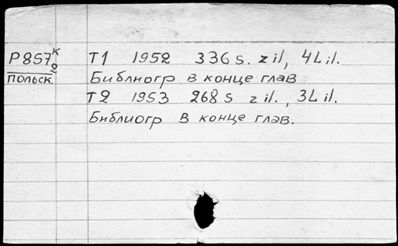 Р857 к/2 Т1 1952 336 s. z il, 4L il.
польск. Библиогр в конце глав
Т2 1953 268 s z il., 3L il.
Библиогр в конце глав.